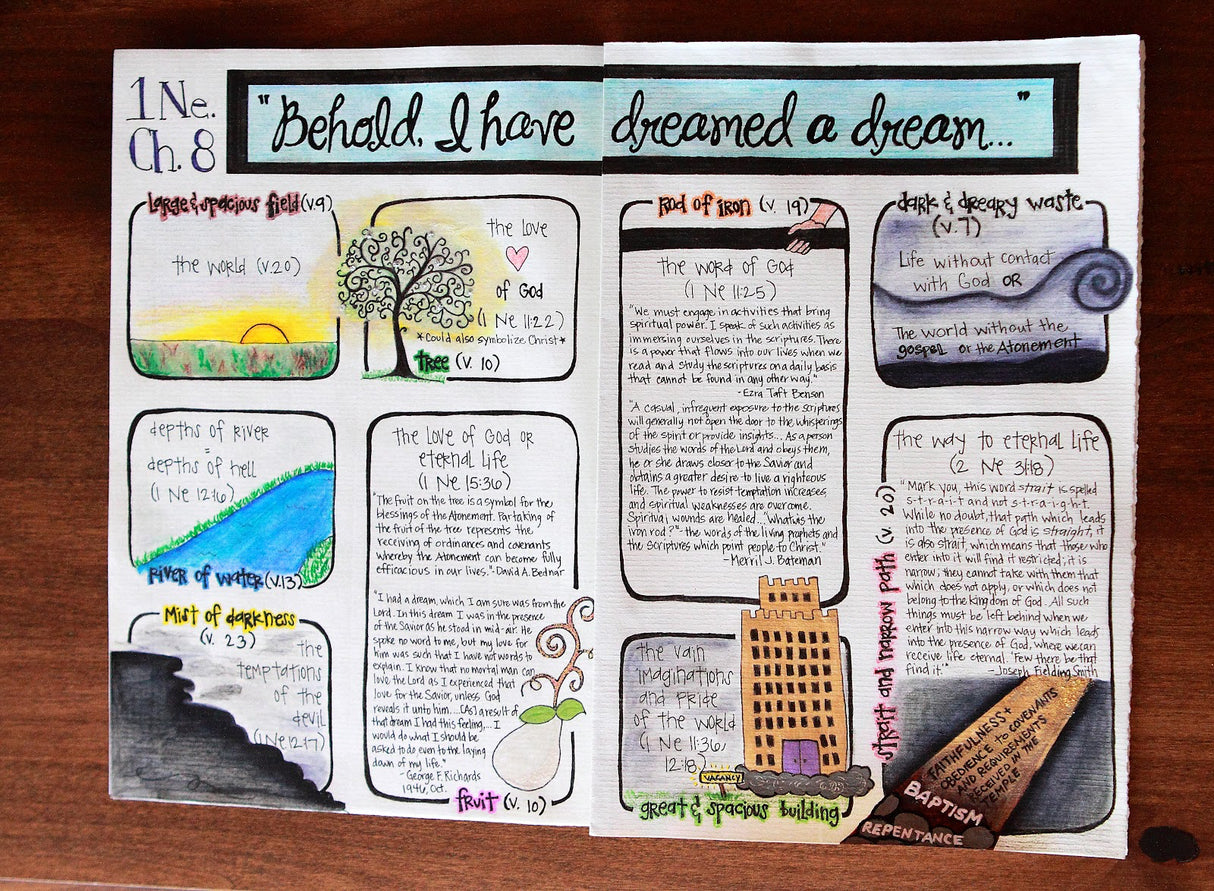 1 Ne.
Ch. 8
"Behold, I have dreamed a dream..."
Large & spacious field (v.9)
the world (v.20)
the love
of God
(1 Ne 11:22)
*Could also symbolize Christ*
tree (v. 10)
depths of river
=
depths of hell
(1 Ne 12:16)
River of water (v.13)
Mist of darkness
(v. 23)
the
temptations
of the
devil
(1 Ne 12:17)
the love of God or
eternal life
(1 Ne 15:36)
"The fruit on the tree is a symbol for the
blessings of the Atonement. Partaking of
the fruit of the tree represents the
receiving of ordinances and covenants
whereby the Atonement can become fully
efficacious in our lives." - David A. Bednar
"I had a dream, which I am sure was from the
Lord. In this dream I was in the presence
of the Savior as he stood in mid-air. He
spoke no word to me, but my love for
him was such that I have not words to
explain. I know that no mortal man can
love the Lord as I experienced that
love for the Savior, unless God
reveals it unto him....[As] a result of
that dream I had this feeling,... I
would do what I should be
asked to do even to the laying
down of my life."
- George F. Richards
1946, Oct.
fruit (v. 10)
Rod of iron (v. 19)
the word of God
(1 Ne 11:25)
"We must engage in activities that bring
spiritual power. I speak of such activities as
immersing ourselves in the scriptures. There
is a power that flows into our lives when we
read and study the scriptures on a daily basis
that cannot be found in any other way."
- Ezra Taft Benson
"A casual, infrequent exposure to the scriptures
will generally not open the door to the whisperings
of the spirit or provide insights... As a person
studies the words of the Lord and obeys them,
he or she draws closer to the Savior and
obtains a greater desire to live a righteous
life. The power to resist temptation increases,
and spiritual weaknesses are overcome.
Spiritual wounds are healed..."What was the
iron rod?" - the words of the living prophets and
the scriptures which point people to Christ."
- Merril J. Bateman
the vain
imaginations
and pride
of the world
(1 Ne 11:36,
12:18)
VACANCY
great & spacious building
dark & dreary waste
(v. 7)
Life without contact
with God OR
The world without the
gospel or the Atonement
strait and narrow path (v. 20)
the way to eternal life
(2 Ne 31:18)
"Mark you, this word strait is spelled
s-t-r-a-i-t and not s-t-r-a-i-g-h-t.
While no doubt, that path which leads
into the presence of God is straight, it
is also strait, which means that those who
enter into it will find it restricted; it is
narrow; they cannot take with them that
which does not apply, or which does not
belong to the kingdom of God. All such
things must be left behind when we
enter into this narrow way which leads
into the presence of God, where we can
receive life eternal. 'Few there be that
find it.'" - Joseph Fielding Smith
FAITHFULNESS +
OBEDIENCE to COVENANTS
AND REQUIREMENTS
RECEIVED IN THE
TEMPLE
BAPTISM
REPENTANCE